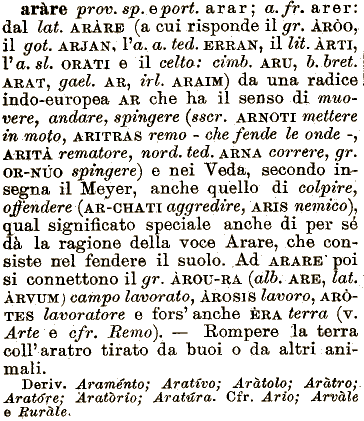 aràre prov. sp. e port. arar; a. fr. arer:
dal lat. ARÀRE (a cui risponde il gr. ARÒO,
il got. ARJAN, l'a. a. ted. ERRAN, il lit. ÀRTI,
l'a. sl. ORATI e il celto: cimb. ARU, b. bret.
ARAT, gael. AR, irl. ARAIM) da una radice
indo-europea AR che ha il senso di muo-
vere, andare, spingere (sscr. ARNOTI mettere
in moto, ARITRAS remo - che fende le onde -,
ARITÀ rematore, nord. ted. ARNA correre, gr.
OR-NÚO spingere) e nei Veda, secondo in-
segna il Meyer, anche quello di colpire,
offendere (AR-CHATI aggredire, ARIS nemico),
qual significato speciale anche di per sé
dà la ragione della voce Arare, che con-
siste nel fendere il suolo. Ad ARARE poi
si connettono il gr. ÀROU-RA (alb. ARE, lat.
ÀRVUM) campo lavorato, ÀROSIS lavoro, ARÒ-
TES lavoratore e fors' anche ÈRA terra (v.
Arte e cfr. Remo). — Rompere la terra
coll' aratro tirato da buoi o da altri ani-
mali.
Deriv. Araménto; Aratívo; Aràtolo; Aràtro;
Aratóre; Aratòrio; Aratúra. Cfr. Ario; Arvàle
e Ruràle.